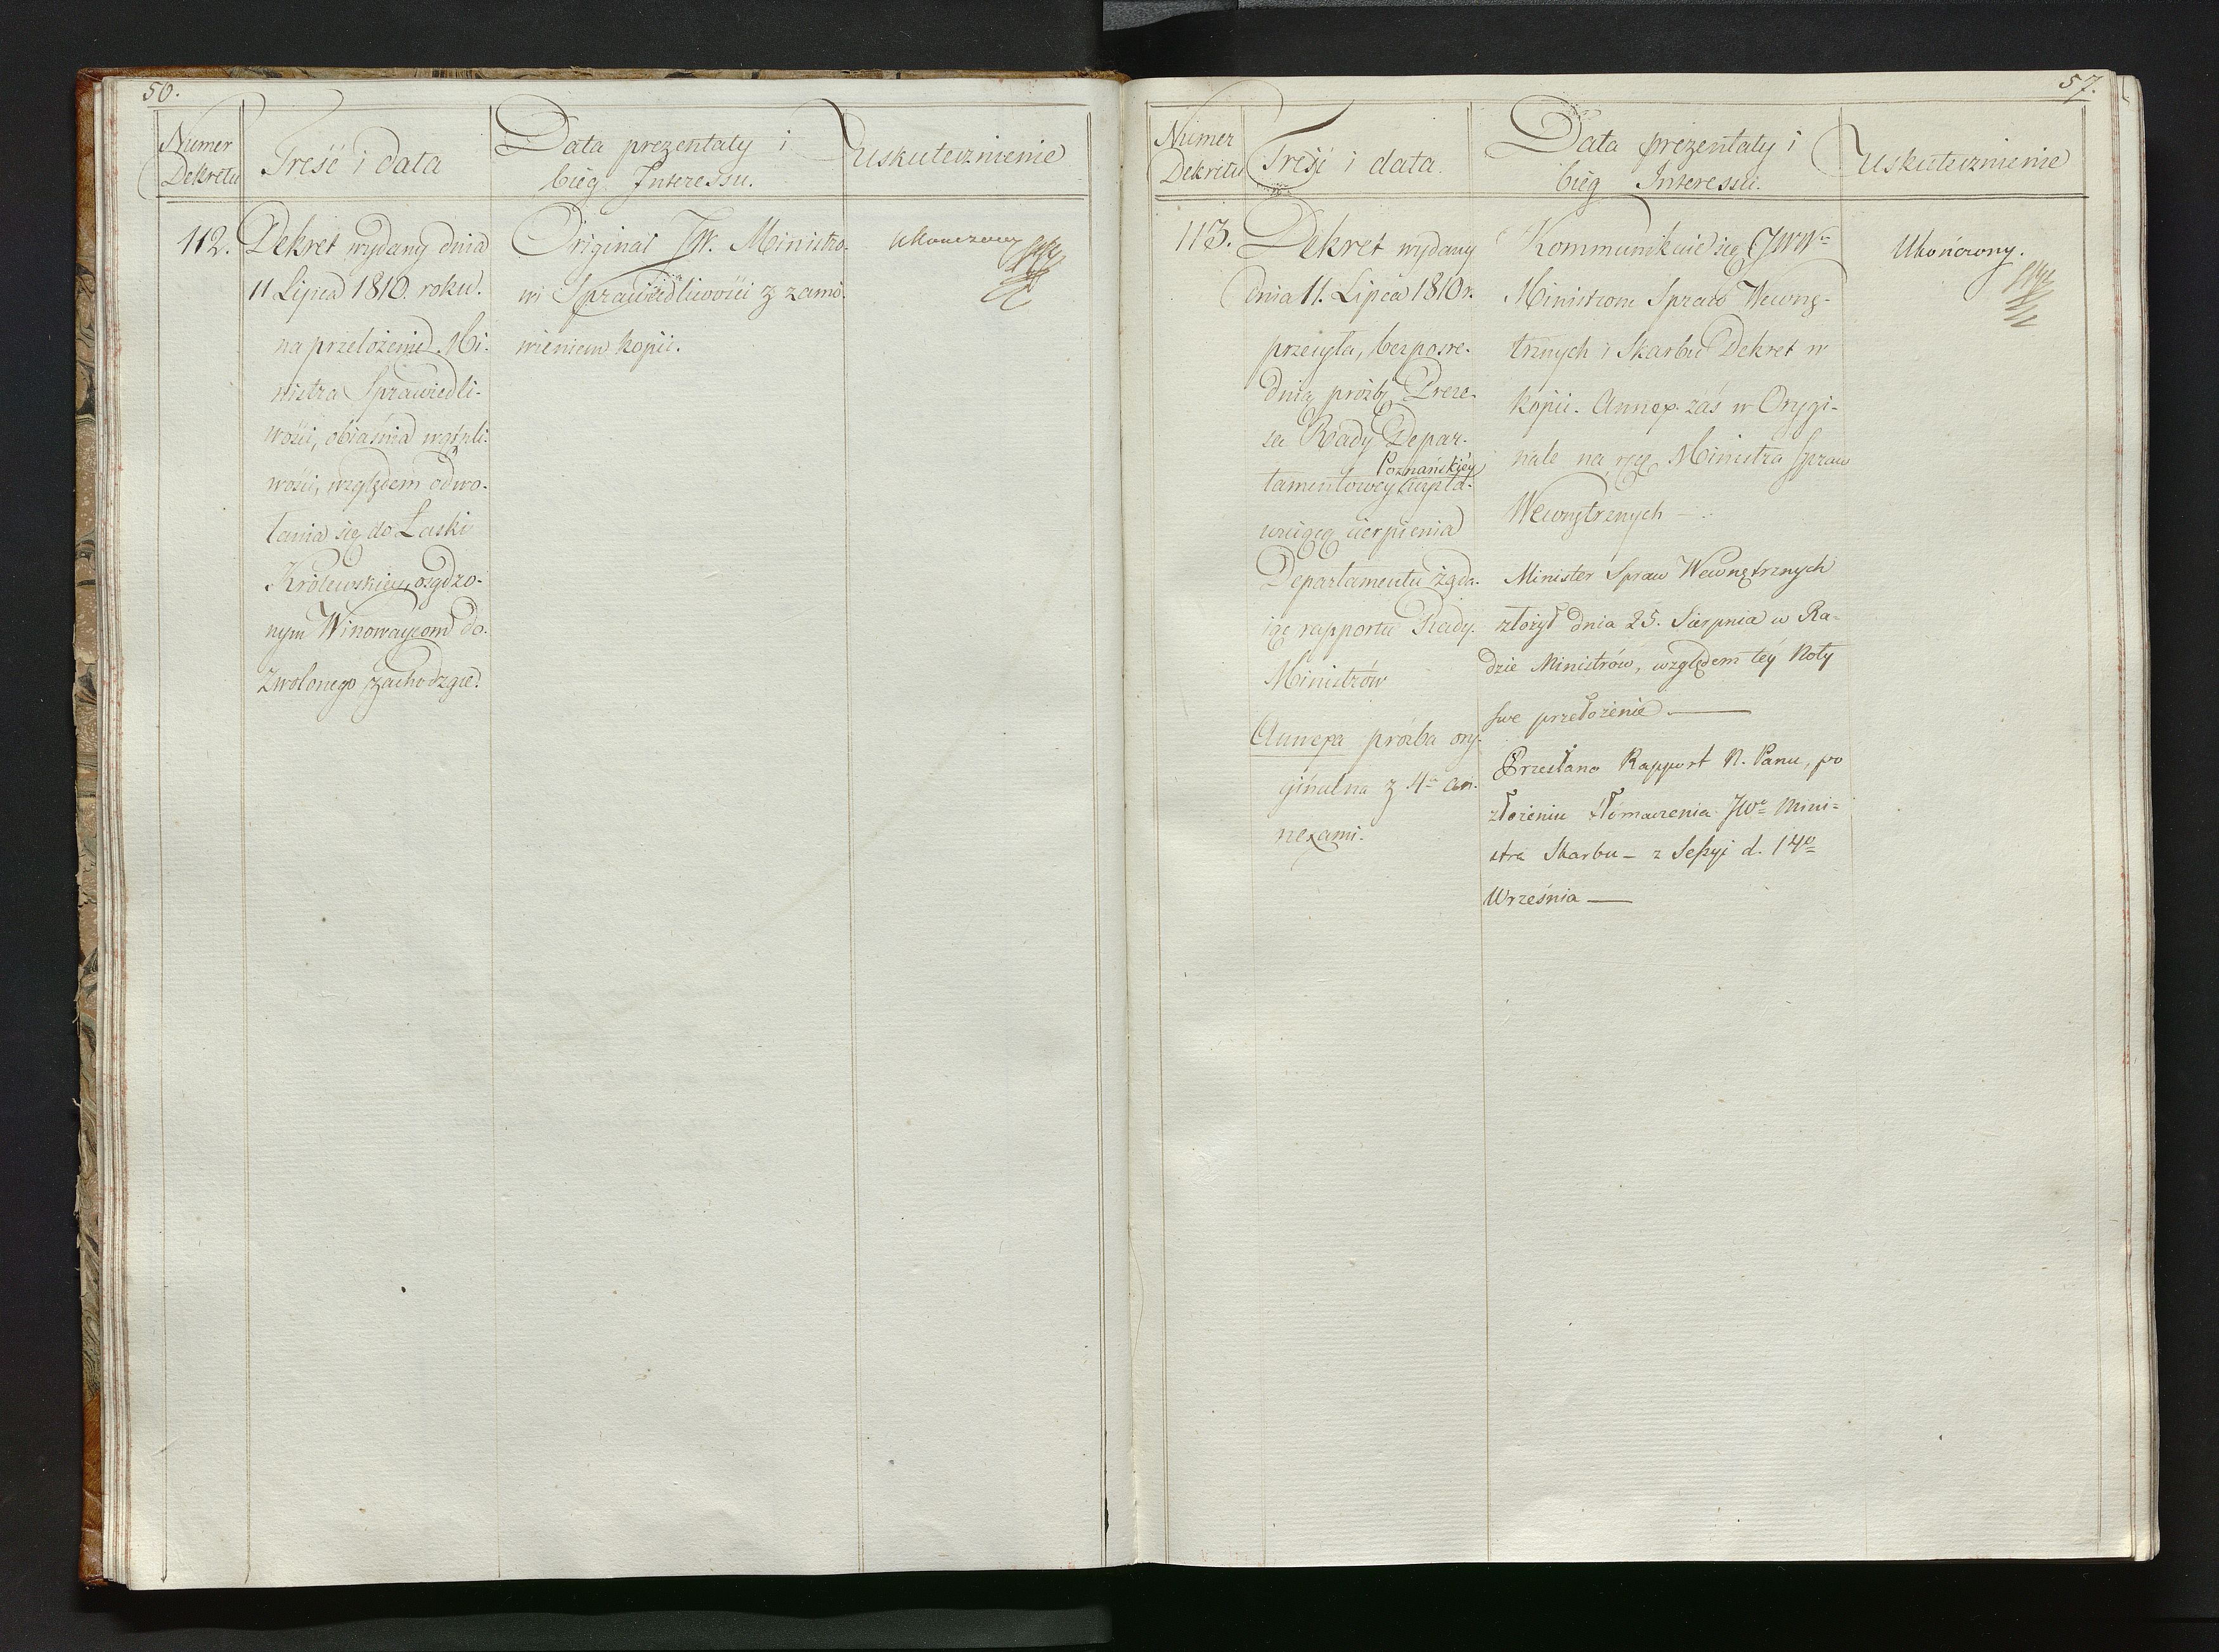 56.
Numer Dekretu
Treść i data
Data prezentaty i bieg Interessu.
uskutecznienie
112.
Dekret wydany dnia
11 Lipca 1810. roku.
na przełożenie Mi-
nistra Sprawiedli-
wości, obiaśnia wątpli-
wości, względem odwo-
łania się do Łaski
Królewskiey, osądzo-
nym Winowaycom do-
zwolonego zachodzące.
Originał JW. Ministro-
wi Sprawiedliwości z zamó-
wieniem kopii.
Ukonczony
57.
Numer Dekretu
Treść i data.
Data prezentaty i bieg Interessu.
Uskutecznienie
113.
Dekret wydany
dnia 11. Lipca 1810 r.
przesyła, bezposre-
dnią prożbę Preze-
sa Rady Depar-
tamentowey Poznańskiey
wuiącą cierpienia
Departamentu żąda-
iąc rapportu Rady
Ministrów
Annexa próżba ory-
ginalna z 4ma an-
nexami.
Kommunikuie się JWW
Ministrom Spraw Wewnę-
trznych i Skarbu Dekret w
kopii. Annex. zaś w Orygi-
nale na ręce Ministra Spraw
Wewnętrznych —
Minister Spraw Wewnętrznych
złożył dnia 25. Sierpnia w Ra-
dzie Ministrów, względem téy Noty
swe przełożenie —
Przesłano Rapport N. Panu, po
złożeniu tłomaczenia JWo Mini-
stra Skarbu — z Sessyi d. 14o
Września —
Ukończony.